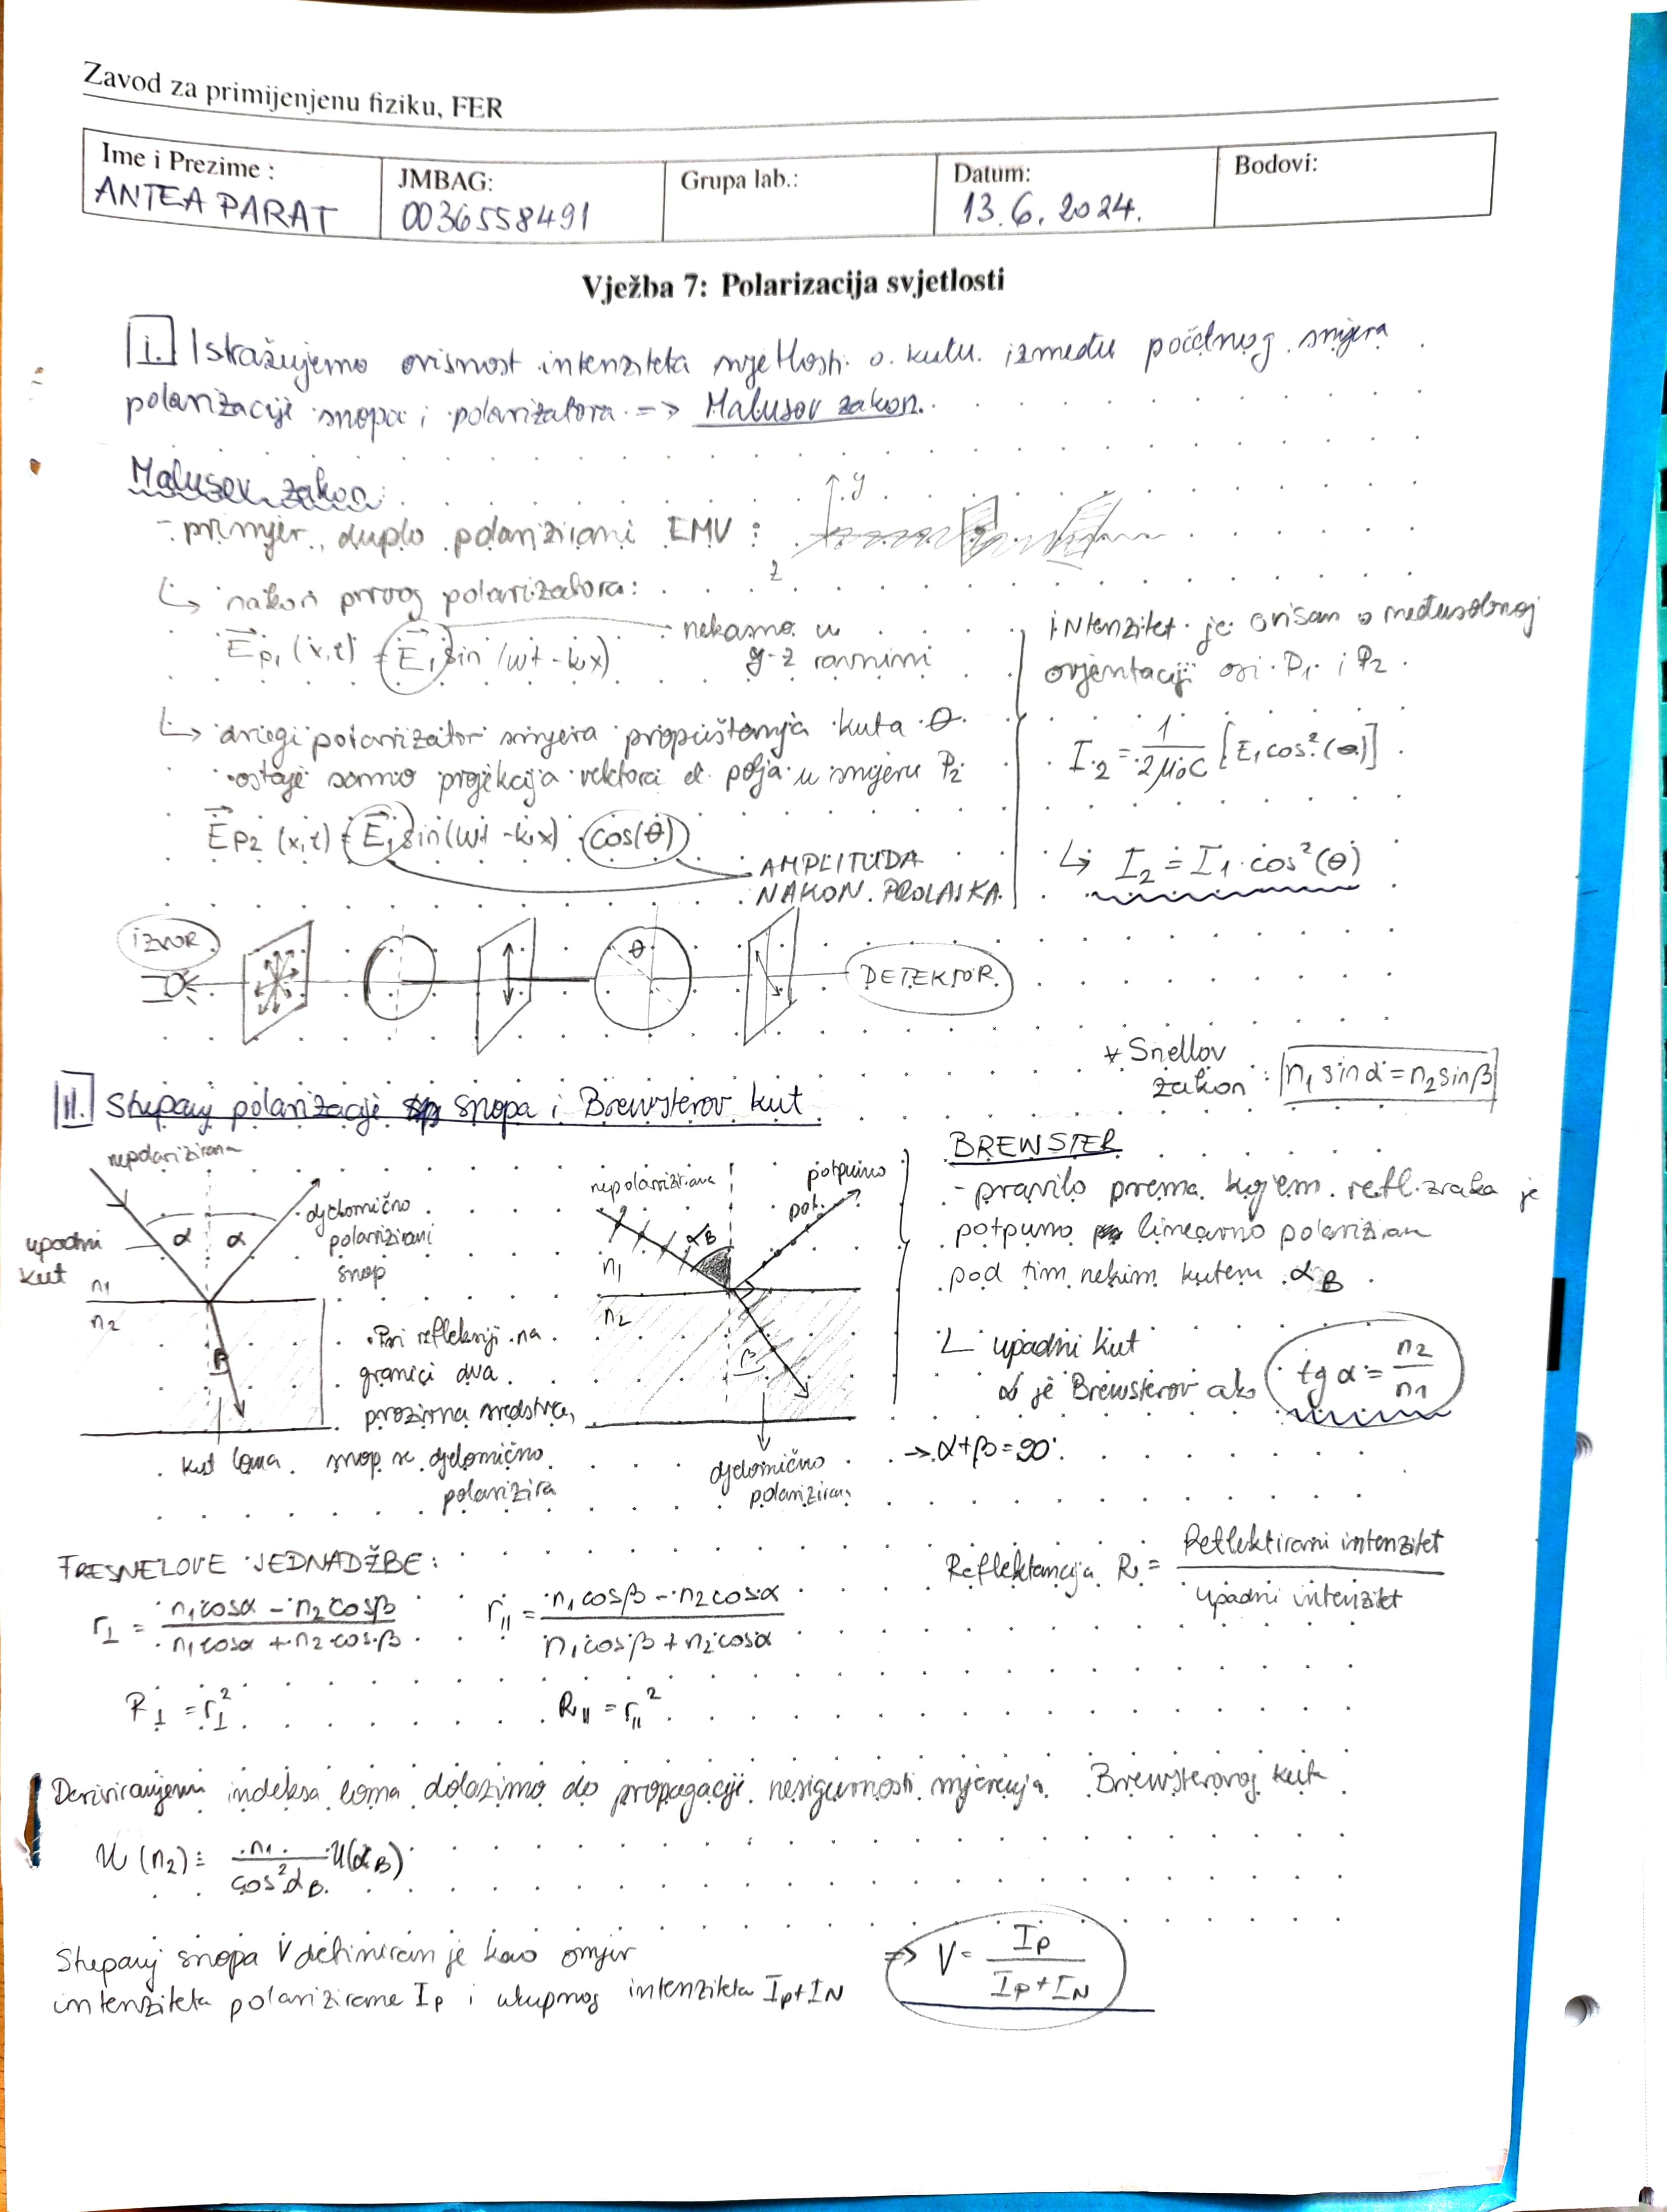 Zavod za primijenjenu fiziku, FER
Ime i Prezime :
ANTEA PARAT
JMBAG:
0036558491
Grupa lab.:
Datum:
13.6.2024.
Bodovi:
Vježba 7: Polarizacija svjetlosti
I. Istražujemo ovisnost intenziteta svjetlosti o kutu između početnog smjera
polarizacije snopa i polarizatora => Malusov zakon.
Malusov zakon:
- primjer, duplo polarizirani EMV :
y
z
↳ nakon prvog polarizatora:
E⃗p₁ (x,t) = E⃗₁ sin (ωt - k₁x)
nekamo u
y-z ravnini
↳ drugi polarizator smjera propuštanja kuta θ
ostaje samo projekcija vektora el. polja u smjeru P₂
E⃗p₂ (x,t) = E⃗₁ sin(ωt - k₁x) cos(θ)
AMPLITUDA
NAKON PROLASKA
intenzitet je ovisan o međusobnoj
orjentaciji osi P₁ i P₂.
I₂ = 1/2μ₀c [E₁cos²(θ)]
↳ I₂ = I₁ · cos²(θ)
IZVOR
θ
DETEKTOR
* Snellov
zakon : n₁ sinα = n₂ sinβ
II. Stupanj polarizacije snopa i Brewsterov kut
nepolarizirana
upadni
kut
α α
djelomično
polarizirani
snop
n₁
n₂
β
kut loma
• Pri refleksiji na
granici dva
prozirna sredstva,
snop se djelomično
polarizira
nepolarizirana
potpuno
pol.
αB
n₁
n₂
β
djelomično
polarizirana
BREWSTER
- pravilo prema kojem refl. zraka je
potpuno linearno polarizirana
pod tim nekim kutem αB.
∟ upadni kut
α je Brewsterov ako tg α = n₂/n₁
→ α+β=90°
FRESNELOVE JEDNADŽBE:
r⊥ = (n₁cosα - n₂cosβ)/(n₁cosα + n₂cosβ)
r∥ = (n₁cosβ - n₂cosα)/(n₁cosβ + n₂cosα)
Reflektancija R = Reflektirani intenzitet/upadni intenzitet
R⊥ = r⊥²
R∥ = r∥²
Deriviranjem indeksa loma dolazimo do propagacije nesigurnosti mjerenja Brewsterovog kuta
u (n₂) = n₁/cos²αB u(αB)
Stupanj snopa V definiran je kao omjer
intenziteta polarizirane Ip i ukupnog intenziteta Ip+IN
=> V = Ip/(Ip+IN)